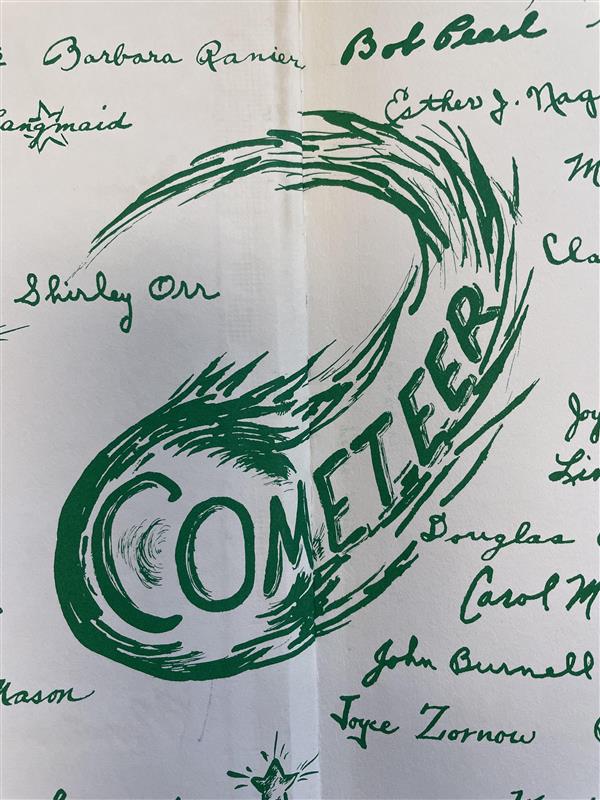 Barbara Ranier
Bob Pearl
Esther J.
Shirley Orr
COMETEER
Douglas
Carol M
John Burnell
Mason
Joyce Zornow